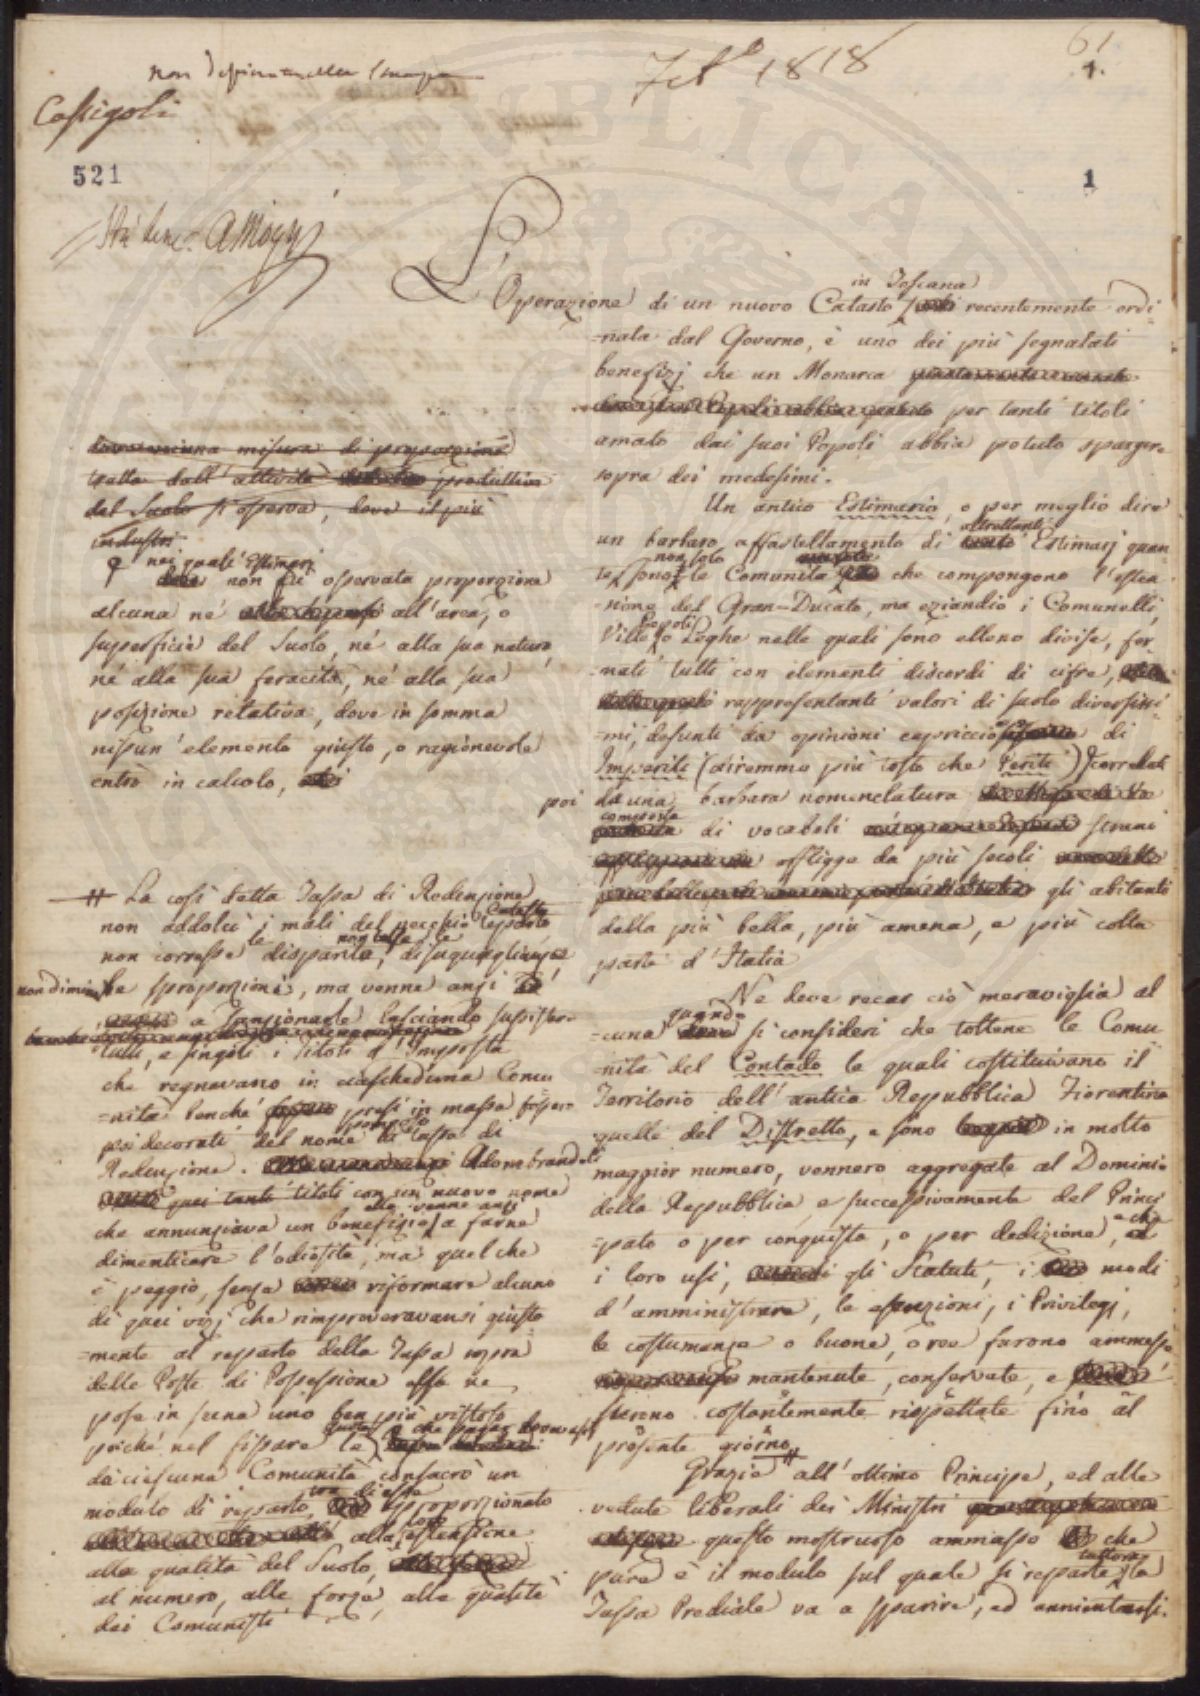 61
1.
non
Feb.º 1818
Cassigoli
521
1
L'Operazione di un nuovo Catasto in Toscana recentemente ordi=
=nata dal Governo, è uno dei più segnalati
benefizj che un Monarca
per tanti titoli
amato dai suoi Popoli abbia potuto spargere
sopra dei medesimi.
Un antico Estimario, o per meglio dire
un barbaro affastellamento di altrettanti Estimarj quan=
te sono non solo le Comunità che compongono l'esten=
=zione del Gran=Ducato, ma eziandio i Comunelli,
Ville Popoli o Leghe nelle quali sono elleno divise, for=
mati tutti con elementi discordi di cifre,
rappresentanti valori di suolo diversissi=
=mi, desunti da opinioni capricciose di
Imperiti (diremmo più tosto che Periti)
poi da una barbara nomenclatura
composta di vocaboli strani
affligge da più secoli
gli abitanti
della più bella, più amena, e più colta
parte d'Italia
Ne deve recar ciò meraviglia ad al
=cuno quando si consideri che toltene le Comu
=nità del Contado le quali costituivano il
Territorio dell'antica Repubblica Fiorentina
quelle del Distretto, e sono in molto
maggior numero, vennero aggregate al Dominio
della Repubblica, e successivamente del Princi
=pato o per conquista, o per dedizione, e che
i loro usi, gli Statuti, i modi
d'amministrare, le esenzioni, i Privilegj,
le costumanze o buone, o ree furono ammesse
mantenute, conservate, e
furono costantemente rispettate fino al
presente giorno #
Grazie all'ottimo Principe, ed alle
vedute liberali dei Ministri
questo mostruoso ammasso che
pure è il modulo sul quale si reparte tuttora la
Tassa Prediale va a sparire, ed annientarsi.
misura di proporzione
tratta dall'attività produttiva
del Suolo si osserva, dove il più
industri
nei quali Estimarj
non fu osservata proporzione
alcuna né all'area, o
superficie del Suolo, né alla sua natura,
né alla sua feracità, né alla sua
posizione relativa, dove in somma
nissun'elemento giusto, o ragionevole
entrò in calcolo,
# La così detta Tassa di Redenzione
non addolcì i mali del vecchio Catasto
non corresse le disparità, non tolse le disuguaglianze
non diminuì le sproporzioni, ma venne anzi
a sanzionarle lasciando sussistere
tutti, e singoli i Titoli d'Imposta
che regnavano in ciascheduna Comu
=nità benché presi in massa fossero
poi decorati del nome pomposo di Tassa di
Redenzione. Adombrandoli
quei tanti titoli con un nuovo nome
che annunziava un benefizio ella venne anzi a farne
dimenticare l'odiosità, ma quel che
è peggio, senza riformare alcuno
di quei vizj che rimproveravansi giusta
=mente al reparto della Tassa sopra
delle Poste di Possessione essa ne
pose in scena uno ben più vistoso
poiché nel fissare le quote che pagar dovevasi
da ciascuna Comunità consacrò un
modulo di reparto, tra di esse sproporzionato
alla loro estensione
alla qualità del Suolo,
al numero, alle forze, alle qualità
dei Comunisti